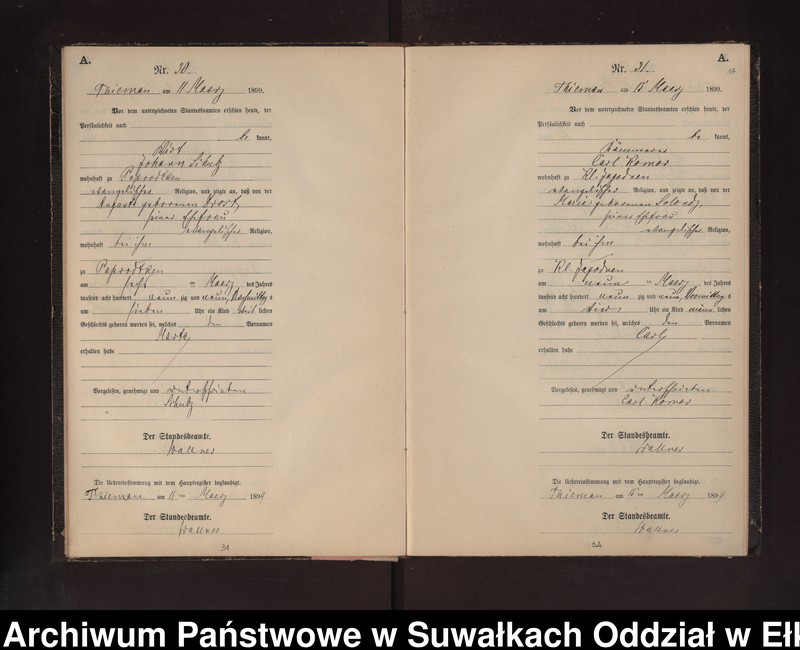 A.
Nr. 30.
Thieman am 11 Maerz 1899.
Vor dem unterzeichneten Standesbeamten erschien heute, der
Persönlichkeit nach
be kannt,
Johann
wohnhaft zu Paprodtken
evangelischer Religion, und zeigte an, daß von der
geborenen
seiner Ehefrau
evangelischer Religion,
wohnhaft bei ihm
zu Paprodtken
am sechs ten Maerz des Jahres
tausend acht hundert neun zig und neun, Nachmittag s
um sieben Uhr ein Kind weib lichen
Geschlechts geboren worden sei, welches den Vornamen
Martha
erhalten habe
Vorgelesen, genehmigt und unterschrieben
Der Standesbeamte.
Wallner
Die Uebereinstimmung mit dem Hauptregister beglaubigt.
Thieman am 11 ten Maerz 1899
Der Standesbeamte.
Wallner
31
A.
17
Nr. 31.
Thieman am 15 Maerz 1899.
Vor dem unterzeichneten Standesbeamten erschien heute, der
Persönlichkeit nach
be kannt,
Carl Komos
wohnhaft zu Kl. Jagodnen
evangelischer Religion, und zeigte an, daß von der
Marie geborenen
seiner Ehefrau
evangelischer Religion,
wohnhaft bei ihm
zu Kl. Jagodnen
am neun ten Maerz des Jahres
tausend acht hundert neun zig und neun, Vormittag s
um vier Uhr ein Kind männ lichen
Geschlechts geboren worden sei, welches den Vornamen
Carl
erhalten habe
Vorgelesen, genehmigt und unterschrieben
Carl Komos
Der Standesbeamte.
Wallner
Die Uebereinstimmung mit dem Hauptregister beglaubigt.
Thieman am 15 ten Maerz 1899
Der Standesbeamte.
Wallner
32
Archiwum Państwowe w Suwałkach Oddział w Ełk